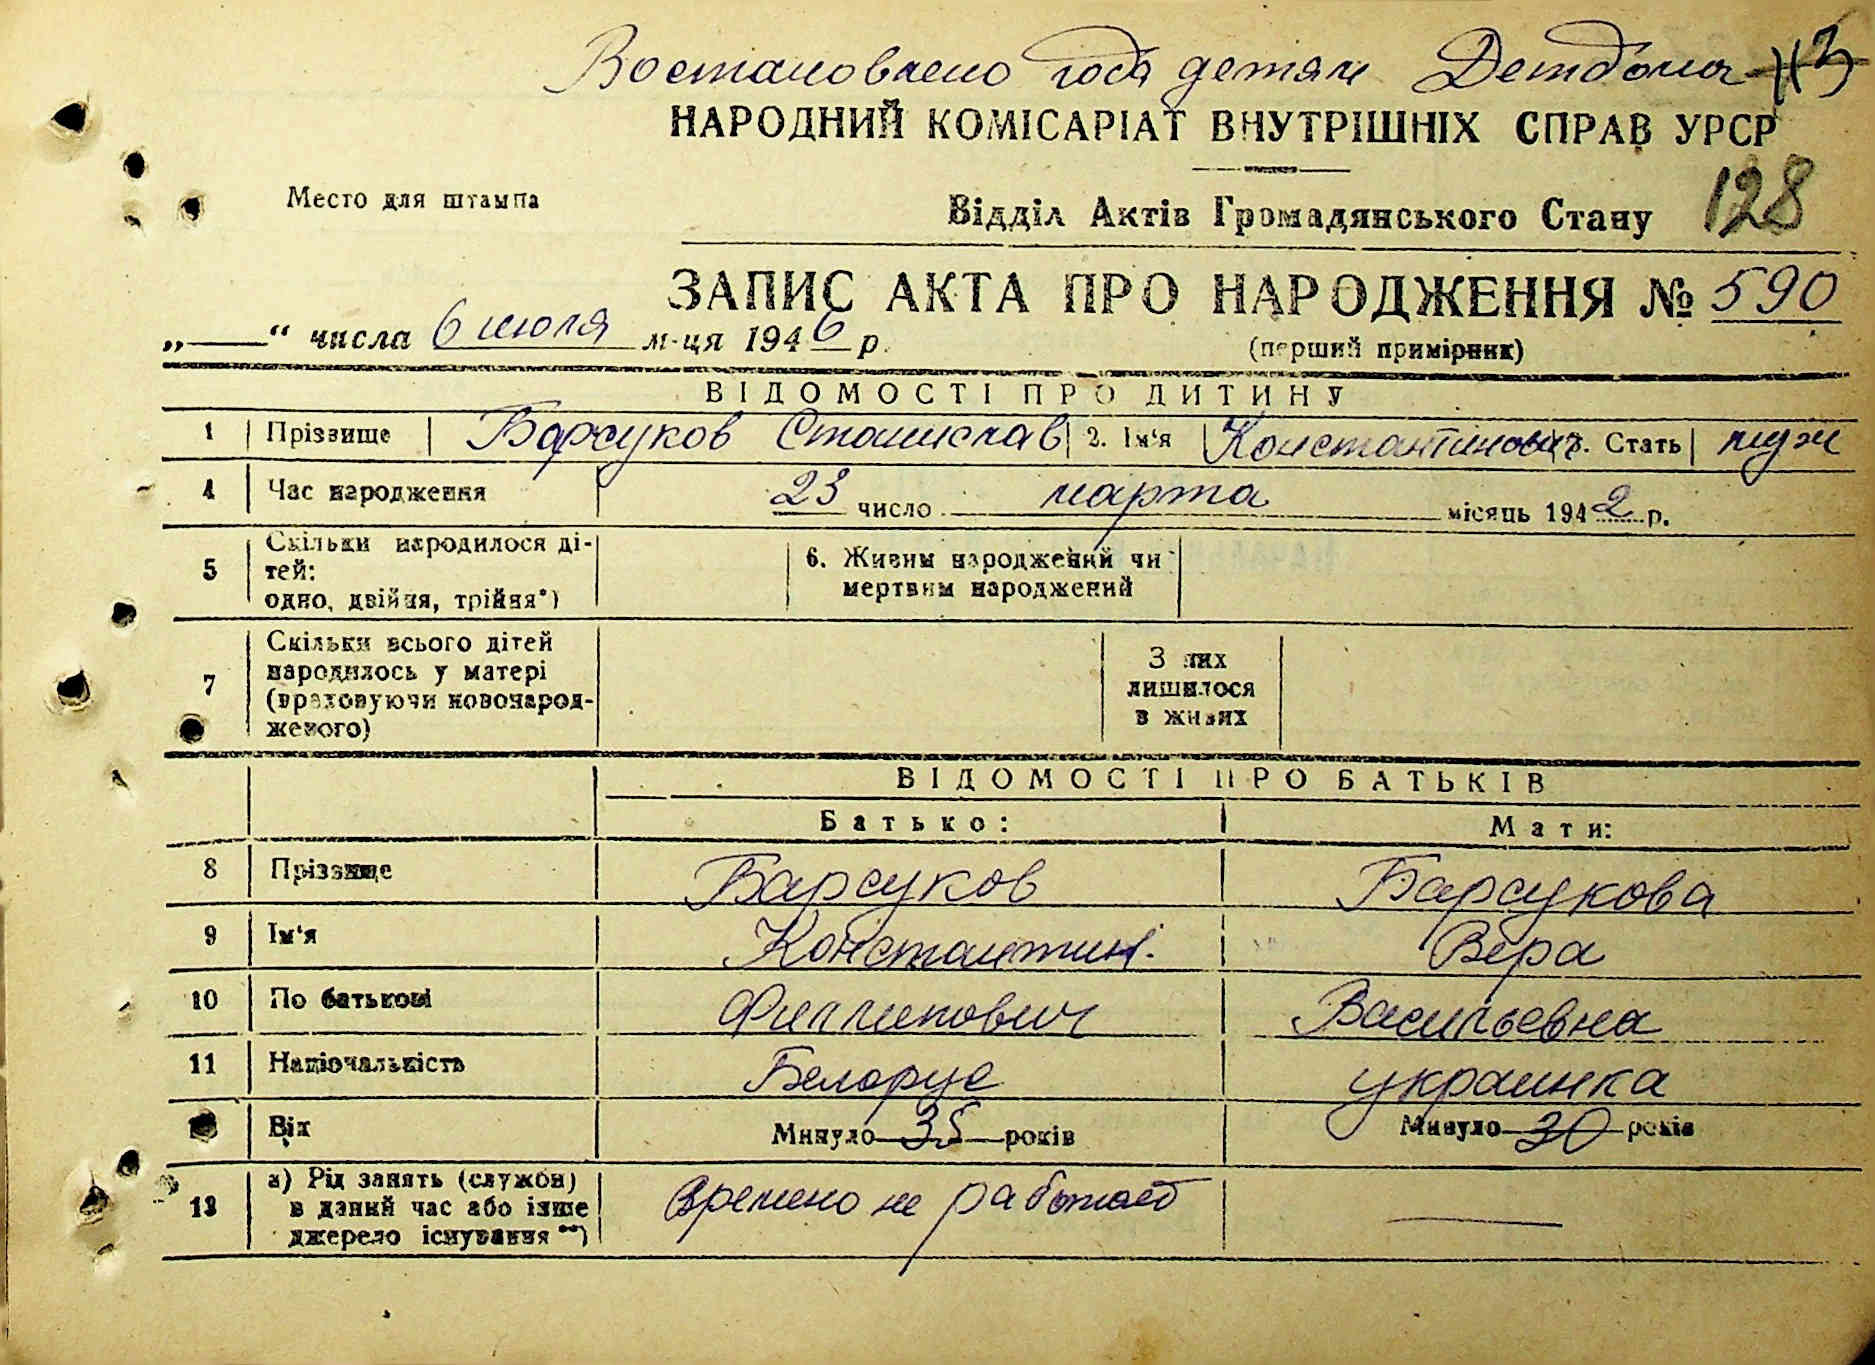 Востановлено года детям Детдома №3
НАРОДНИЙ КОМІСАРІАТ ВНУТРІШНІХ СПРАВ УРСР
Место для штампа
Відділ Актів Громадянського Стану 128
ЗАПИС АКТА ПРО НАРОДЖЕННЯ № 590
„—“ числа 6 июля м-ця 1946 р.
(перший примірник)
ВІДОМОСТІ ПРО ДИТИНУ
1 Прізвище Барсуков Станислав 2. Ім'я Константинович 3. Стать муж
4 Час народження 23 число марта місяць 1942 р.
5 Скільки народилося ді-
тей:
одно, двійня, трійня*)
6. Живим народжений чи
мертвим народжений
7 Скільки всього дітей
народилось у матері
(враховуючи новонарод-
женого)
З них
лишилося
в живих
ВІДОМОСТІ ПРО БАТЬКІВ
Батько: Мати:
8 Прізвище Барсуков Барсукова
9 Ім'я Константин. Вера
10 По батькові Филлипович Васильевна
11 Національність Белорус украинка
Вік Минуло 35 років Минуло 30 років
13 а) Рід занять (служби)
в даний час або інше
джерело існування **)
Времено не работает —